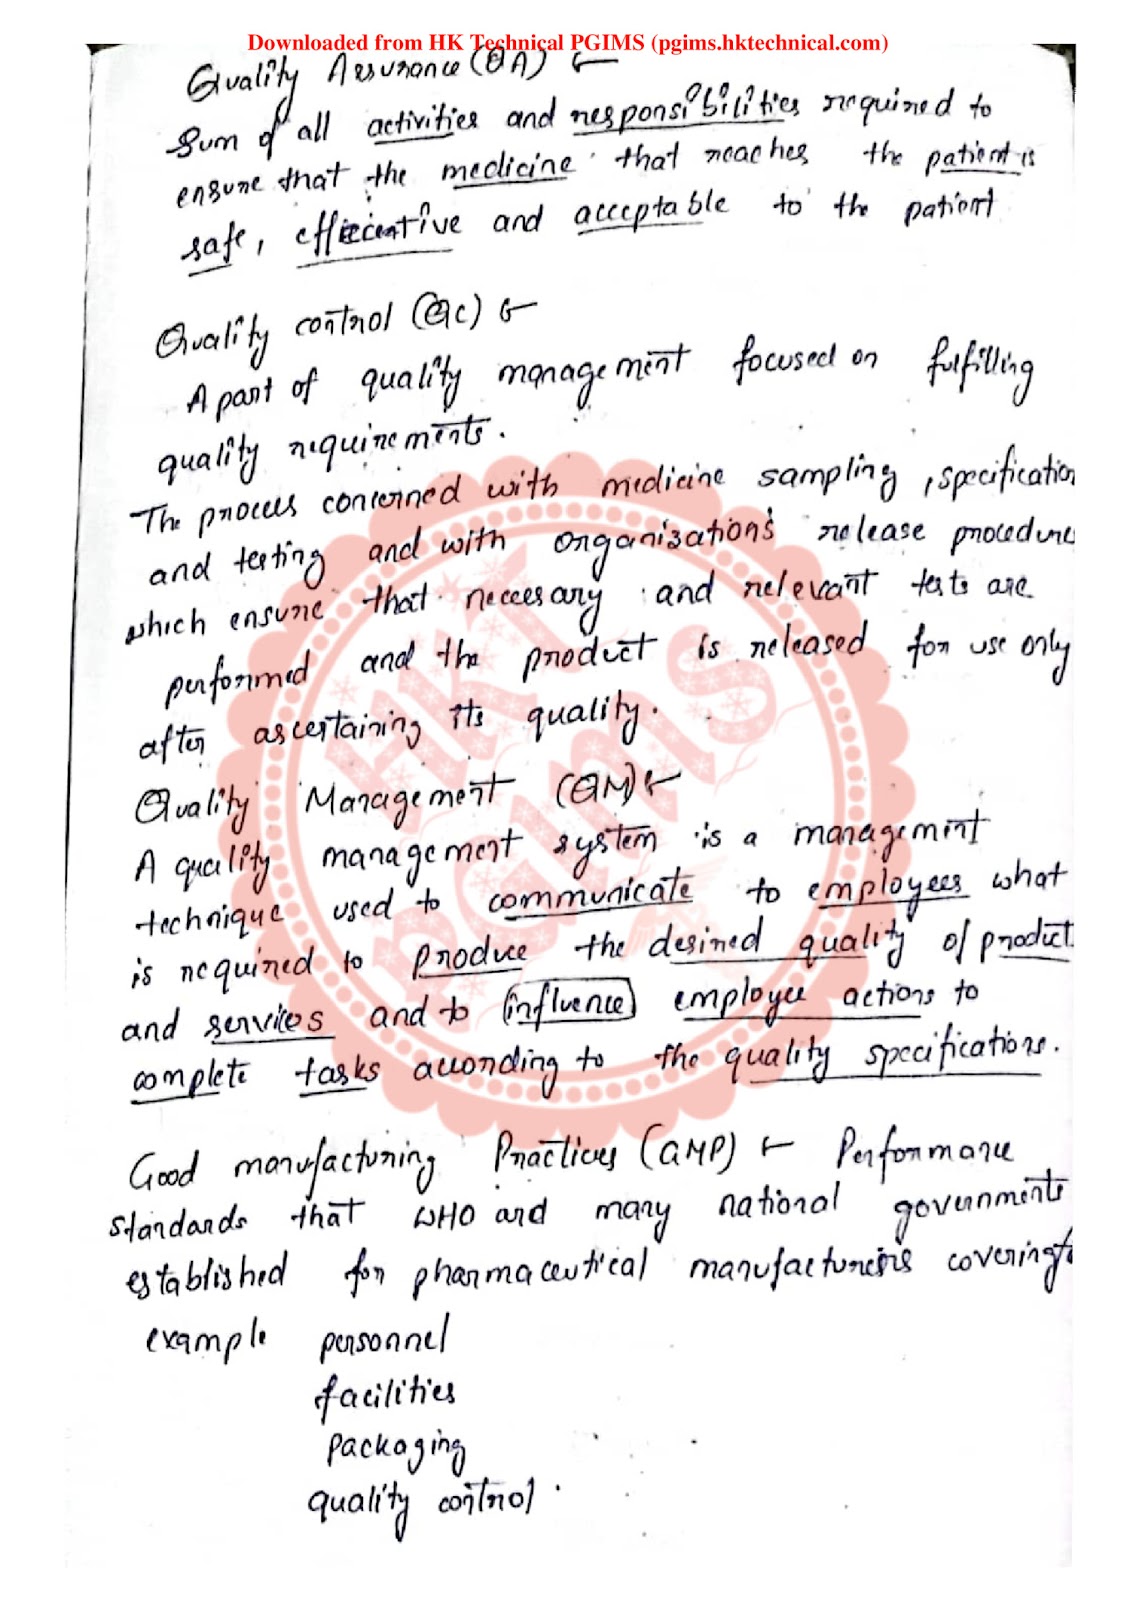 Downloaded from HK Technical PGIMS (pgims.hktechnical.com)
Quality Assurance (QA)
Sum of all activities and responsibilities required to
ensure that the medicine that reaches the patient is
safe, effective and acceptable to the patient
Quality control (QC)
A part of quality management focused on fulfilling
quality requirements.
The process concerned with medicine sampling, specification
and testing and with organization's release procedure
which ensure that necessary and relevant tests are
performed and the product is released for use only
after ascertaining its quality.
Quality Management (QM)
A quality management system is a management
technique used to communicate to employees what
is required to produce the desired quality of product
and services and to influence employee actions to
complete tasks according to the quality specifications.
Good manufacturing Practices (GMP) Performance
standards that WHO and many national governments
established for pharmaceutical manufacturers covering
example personnel
facilities
packaging
quality control.
HKT
PGIMS